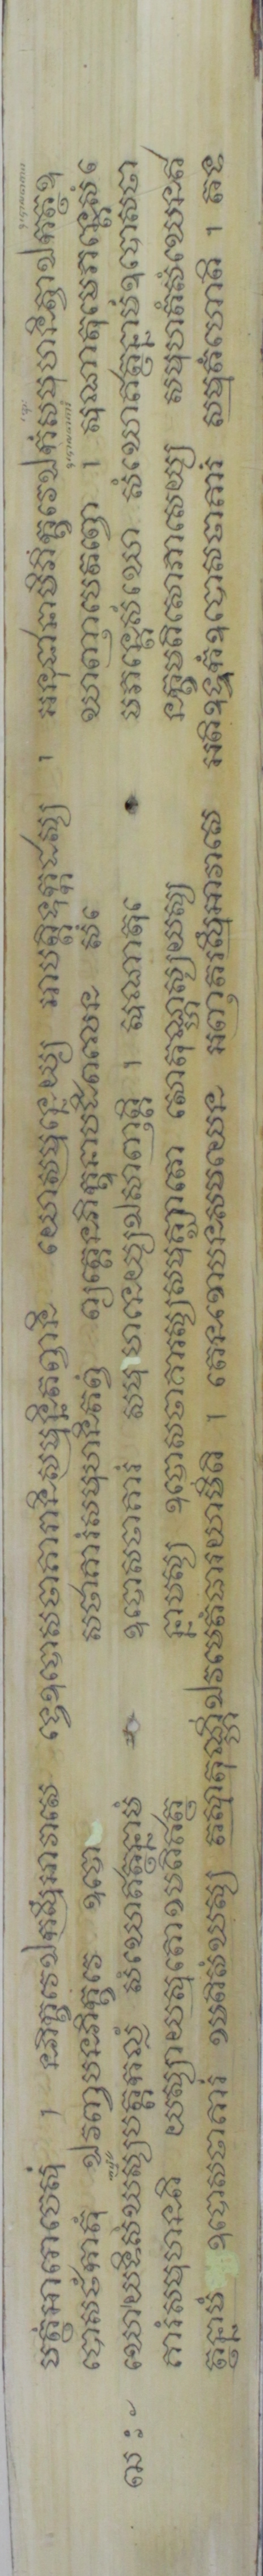 មត្ថំអារោចេសុំ ។ នភិក្ខវេឯកស្មឹអាវាសេ ទ្វេឧបោសថាគារានិសម្មន្និតព្វានិ យោសម្មន្នេយ្យ អាបត្តិទុក្កដស្ស ។ អនុជានាមិភិក្ខវេឯកំសមុហនិត្វាឯកត្ថឧ
បោសថំកាតុំ ឯវញ្ចបនភិក្ខវេ ឧបោសថាគារំសមុហនិតព្វំ ព្យត្តេនភិក្ខុនាបដិពលេន សំឃោញាបេតព្វោ ។ សុណាតុមេភន្តេសំ
ឃោយទិសំឃស្សបត្តកល្លំ សំឃោឥត្ថន្នាមំ ឧបោសថាគារំ សមុហនេយ្យឯសាញត្តិ ។ សុណាតុមេភន្តេសំឃោ សំឃោឥត្ថន្នាមំឧបោសថា
គារំសមុហនតិ យស្សាយស្មតោខមតិឥត្ថន្នាមស្ស ឧបោសថាគារស្សសមុគ្ឃាតោ សោតុណ្ហស្សយស្ស នក្ខមតិសោភាសេយ្យ សមុហតំសំឃេនឥ
ត្ថន្នាមំ ឧបោសថាគារំ ខមតិសំឃស្ស តស្មាតុណ្ហីឯវមេតំធារយាមីតិ ។ តេនខោបនសមយេន អញ្ញតរស្មឹអាវាសេ អតិខុទ្ទកំឧបោសថាគារំ សម្មតំហោតិ ។ តទ